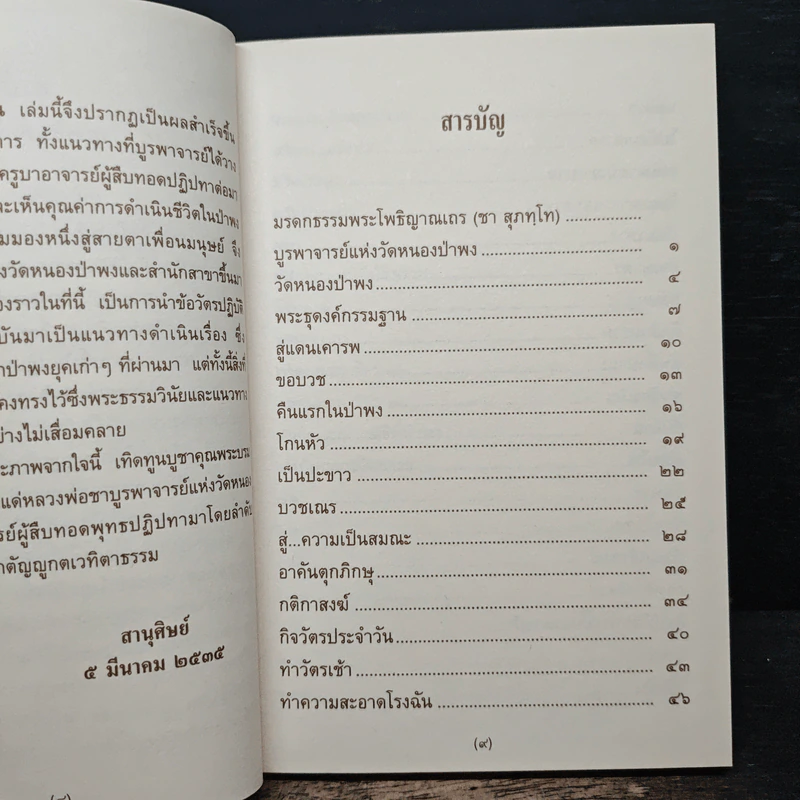 เล่มนี้จึงปรากฏเป็นผลสำเร็จขึ้น
การ ทั้งแนวทางที่บูรพาจารย์ได้วาง
ครูบาอาจารย์ผู้สืบทอดปฏิปทาต่อมา
ละเห็นคุณค่าการดำเนินชีวิตในป่าพง
มมองหนึ่งสู่สายตาเพื่อนมนุษย์ จึง
งวัดหนองป่าพงและสำนักสาขาขึ้นมา
องราวในที่นี้ เป็นการนำข้อวัตรปฏิบัติ
บันมาเป็นแนวทางดำเนินเรื่อง ซึ่ง
าป่าพงยุคเก่าๆ ที่ผ่านมา แต่ทั้งนี้สิ่งที่
คงทรงไว้ซึ่งพระธรรมวินัยและแนวทาง
ย่างไม่เสื่อมคลาย
ะภาพจากใจนี้ เทิดทูนบูชาคุณพระบรม
แด่หลวงพ่อชาบูรพาจารย์แห่งวัดหนอง
รย์ผู้สืบทอดพุทธปฏิปทามาโดยลำดับ
ตัญญูกตเวทิตาธรรม
สานุศิษย์
๕ มีนาคม ๒๕๓๕
(๘)
สารบัญ
มรดกธรรมพระโพธิญาณเถร (ชา สุภทฺโท) ................
บูรพาจารย์แห่งวัดหนองป่าพง ................ ๑
วัดหนองป่าพง ................ ๔
พระธุดงค์กรรมฐาน ................ ๗
สู่แดนเคารพ ................ ๑๐
ขอบวช ................ ๑๓
คืนแรกในป่าพง ................ ๑๖
โกนหัว ................ ๑๙
เป็นปะขาว ................ ๒๒
บวชเณร ................ ๒๕
สู่...ความเป็นสมณะ ................ ๒๘
อาคันตุกภิกษุ ................ ๓๑
กติกาสงฆ์ ................ ๓๔
กิจวัตรประจำวัน ................ ๔๐
ทำวัตรเช้า ................ ๔๓
ทำความสะอาดโรงฉัน ................ ๔๖
(๙)